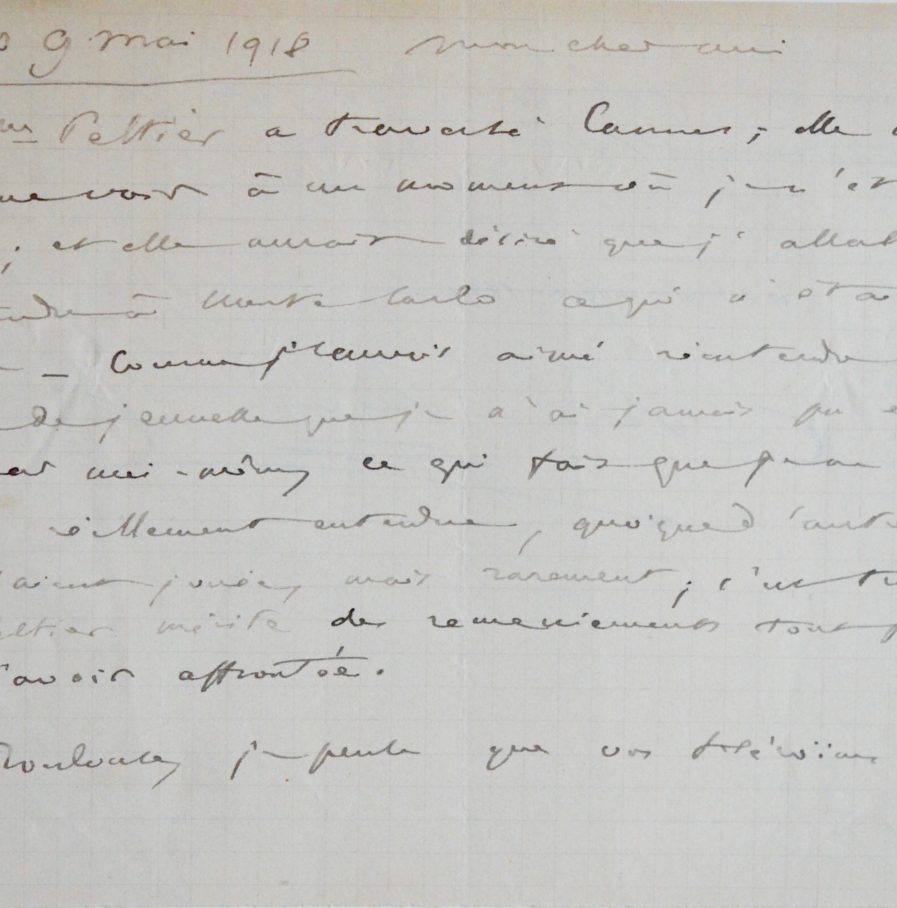 9 mai 1918 mon cher ami
Peltier a traversé Cannes ; elle
me voir à un moment où je n'ét
; et elle aurait désiré que j' allas
à Monte Carlo ce qui n' éta
– Comme j'aurais aimé réentendre
de que je n'ai jamais pu
moi-même, ce qui fait que je
réellement entendue, quoique d'autr
aient jouée, mais rarement ; c'est
eltier mérite des remerciements tout
l'avoir affrontée.
Toulouse, je pense que vos Héroïnes